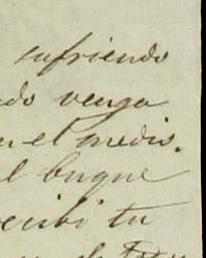 sufriendo
do venga
en el medio.
l buque
ecibi tu